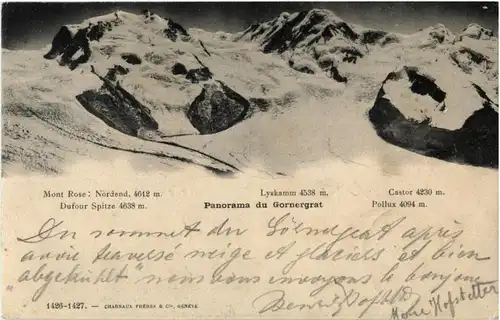 Mont Rose: Nordend. 4612 m.
Lyskamm 4538 m.
Castor 4230 m.
Dufour Spitze 4638 m.
Panorama du Gornergrat
Pollux 4094 m.
Du sommet du Gornergrat après
avoir traversé neige et glaciers et bien
"abgekühlt" nous vous envoyons le bonjour
Hofstetter
1426-1427. — CHARNAUX FRÈRES & Cie, GENÈVE